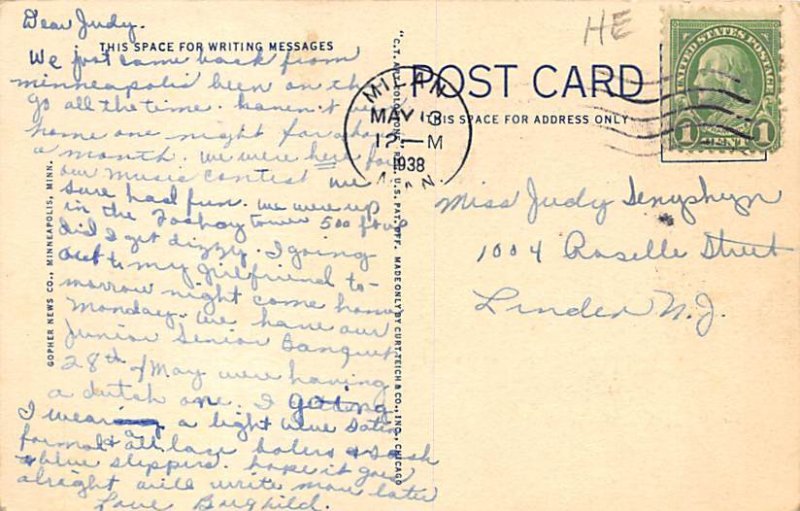 Dear Judy.
THIS SPACE FOR WRITING MESSAGES
We just came back from
minneapolis been on the
go all the time. haven't
home one night for
a month. we were here for
our music contest we
sure had fun. we were up
in the Foshay tower 500
did I get dizzy. I going
out to my girlfriend to-
morrow night come home
Monday. we have our
Junior Senior Banquet
28th of May were having
a dutch one. I going
I wearing a light blue satin
formal + all lace bolero + sash
+ blue slippers. hope it goes
alright will write more later
Love Borghild.
GOPHER NEWS CO., MINNEAPOLIS, MINN.
"C.T. ART-COLORTONE" REG. U.S. PAT. OFF. MADE ONLY BY CURT TEICH & CO., INC., CHICAGO
POST CARD
THIS SPACE FOR ADDRESS ONLY
MILAN
MAY 13
12—M
1938
MINN.
HE
UNITED STATES POSTAGE
1 CENT 1
Miss Judy
1004 Roselle Street
Linden N.J.